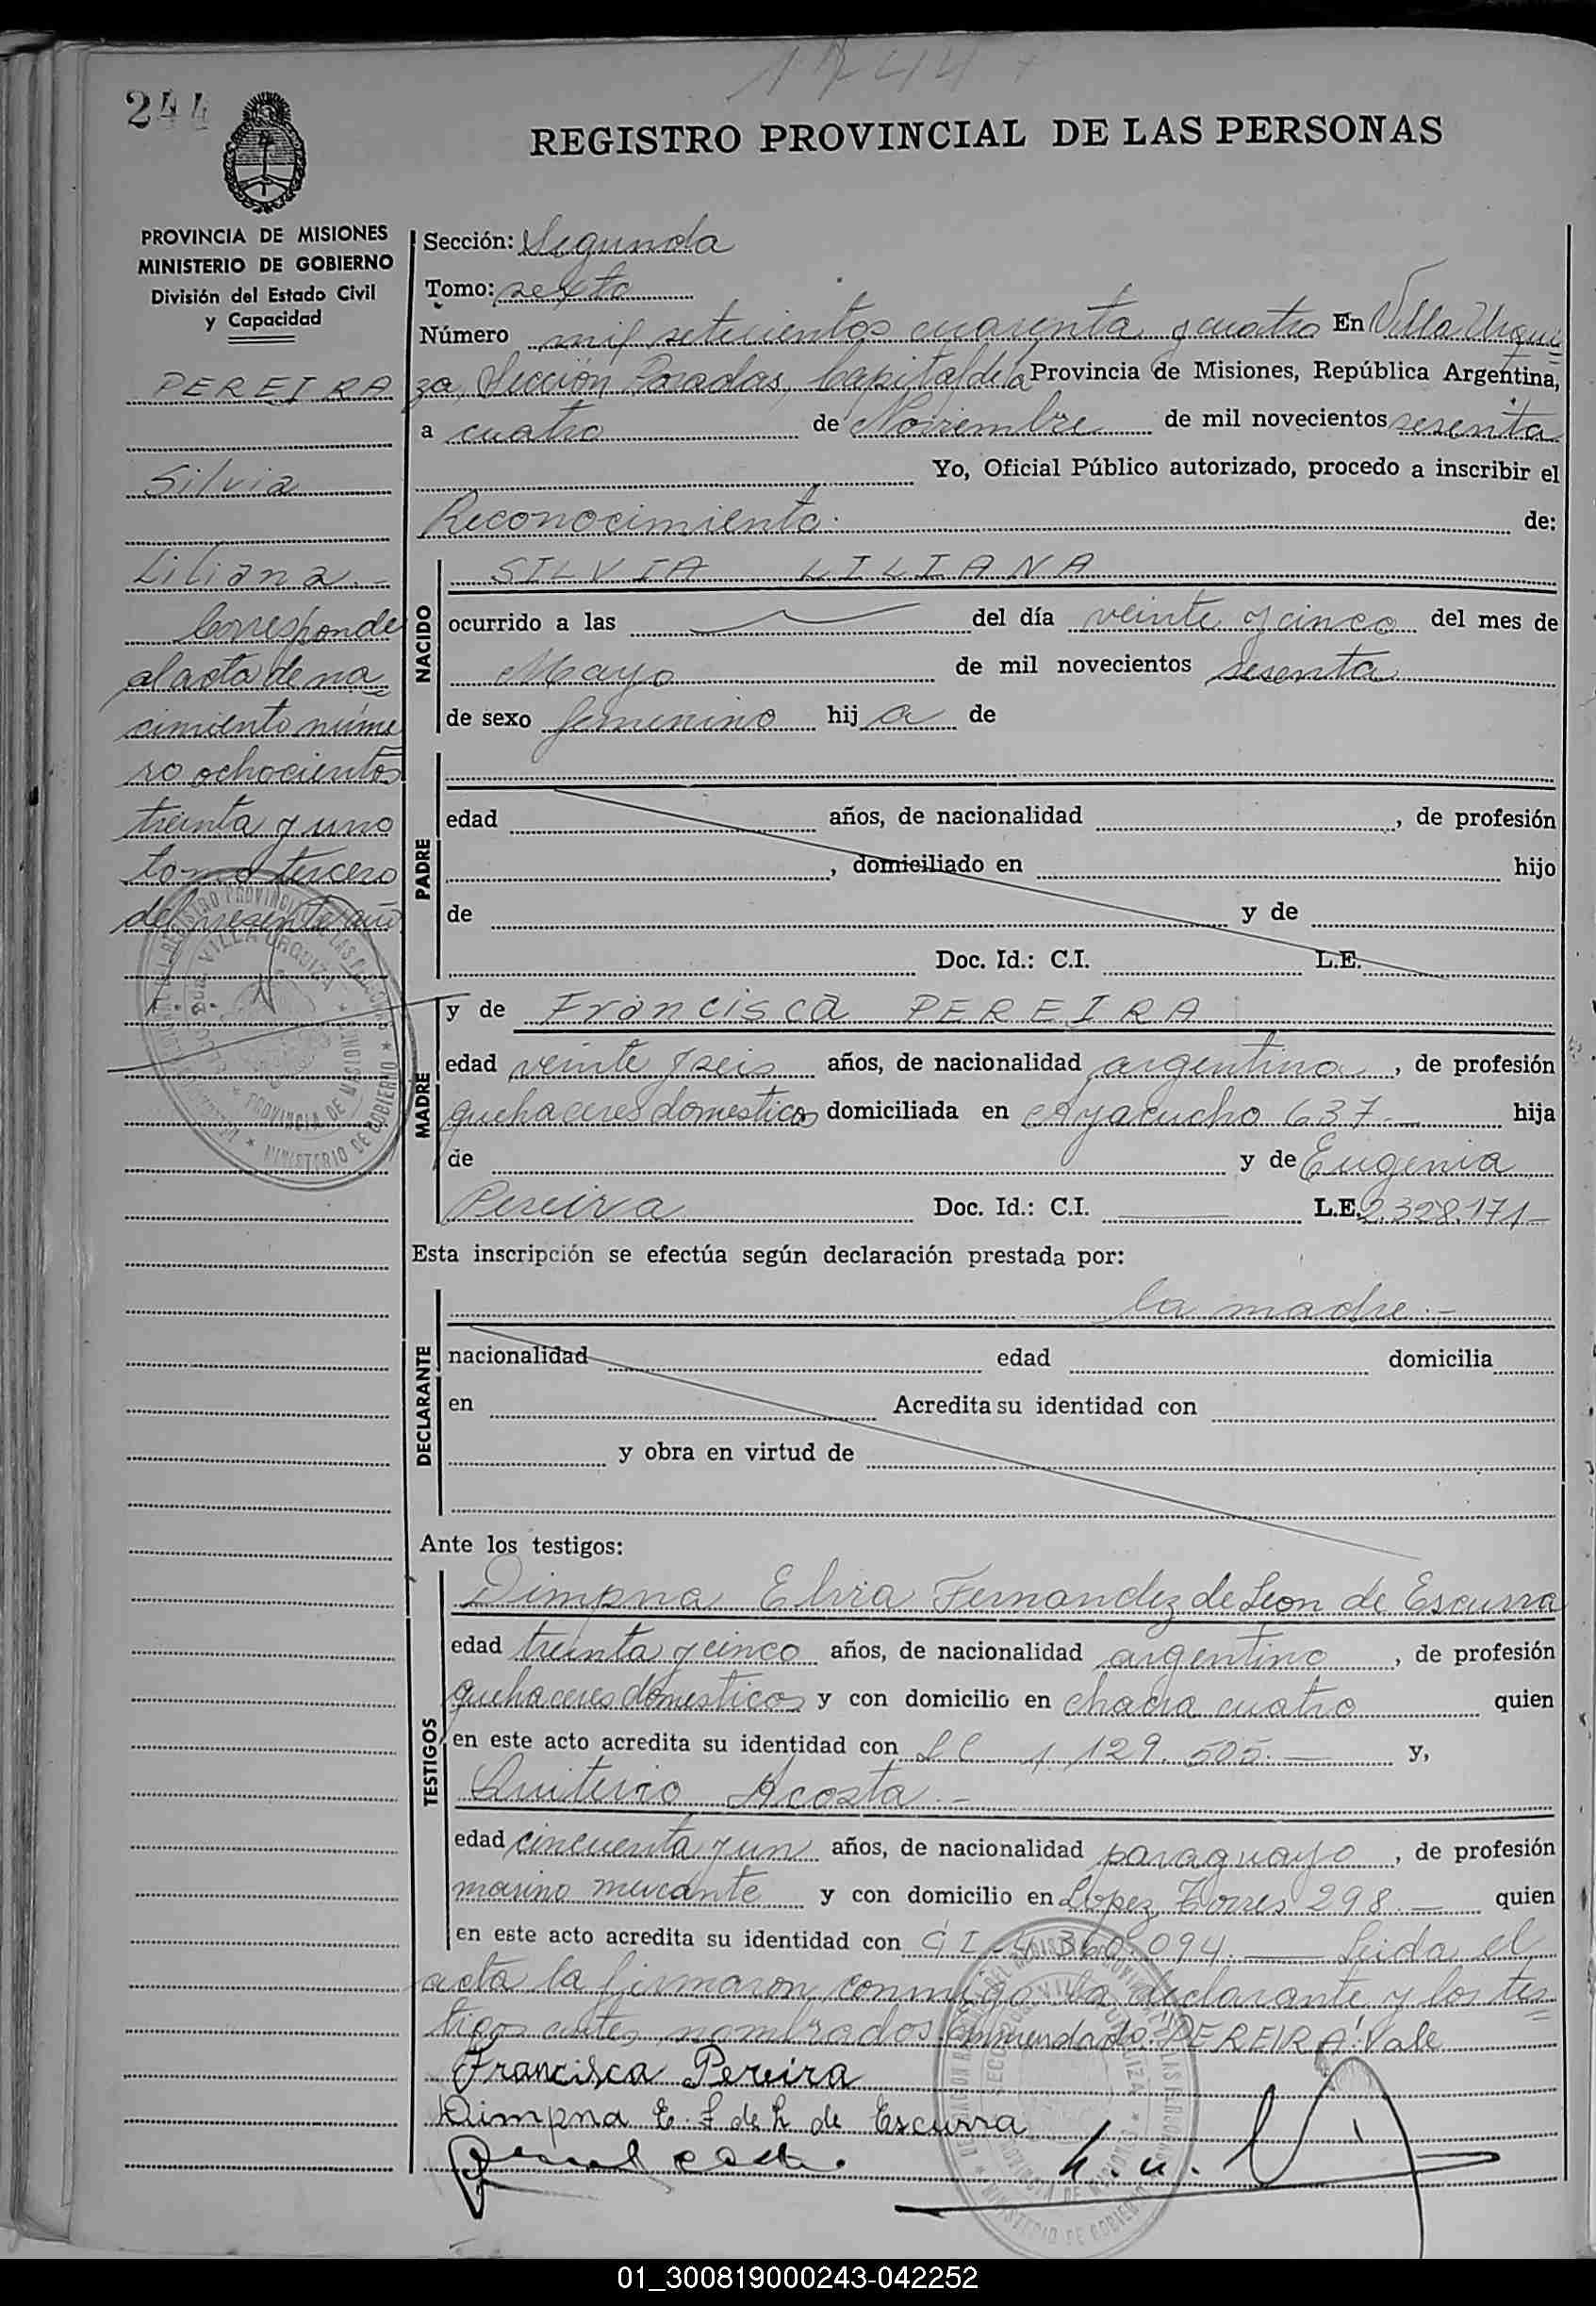 1744
244
REGISTRO PROVINCIAL DE LAS PERSONAS
PROVINCIA DE MISIONES
MINISTERIO DE GOBIERNO
División del Estado Civil
y Capacidad
PEREIRA
Silvia
Liliana.-
Corresponde
al acta de na-
cimiento núme
ro ochocientos
treinta y uno
tomo tercero
del presente año
Sección: Segunda
Tomo: sexto
Número mil setecientos cuarenta y cuatro En Villa Urqui-
za, Sección Posadas, Capital de la Provincia de Misiones, República Argentina,
a cuatro de Noviembre de mil novecientos sesenta
Yo, Oficial Público autorizado, procedo a inscribir el
Reconocimiento. de:
NACIDO
SILVIA LILIANA
ocurrido a las del día veinte y cinco del mes de
Mayo de mil novecientos sesenta
de sexo femenino hij a de
PADRE
edad años, de nacionalidad , de profesión
, domiciliado en hijo
de y de
Doc. Id.: C.I. L.E.
MADRE
y de Francisca PEREIRA
edad veinte y seis años, de nacionalidad argentina, de profesión
quehaceres domesticos domiciliada en Ayacucho 637.— hija
de y de Eugenia
Pereira Doc. Id.: C.I. — L.E. 2.328.171—
Esta inscripción se efectúa según declaración prestada por:
DECLARANTE
la madre.-
nacionalidad edad domicilia
en Acredita su identidad con
y obra en virtud de
Ante los testigos:
TESTIGOS
Dimpna Elvia Fernandez de Leon de Escurra
edad treinta y cinco años, de nacionalidad argentina, de profesión
quehaceres domesticos y con domicilio en chacra cuatro quien
en este acto acredita su identidad con LC 1.129.505.— y,
Quiterio Acosta.-
edad cincuenta y un años, de nacionalidad paraguayo, de profesión
marino mercante y con domicilio en Lopez Torres 298.— quien
en este acto acredita su identidad con CI 360.094.— Leida el
acta la firmaron conmigo la declarante y los tes-
tigos antes nombrados. Enmendado: "PEREIRA" Vale
Francisca Pereira
Dimpna E. F de L de Escurra
01_300819000243-042252